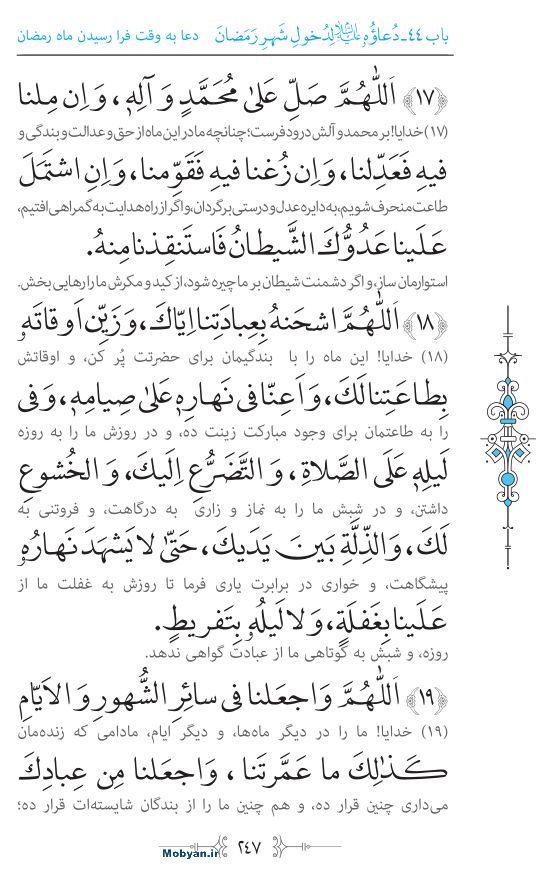 باب ۴۴ـ دُعاؤُهُ لِدُخولِ شَهرِ رَمَضانَ دعا به وقت فرا رسیدن ماه رمضان
﴿۱۷﴾ اَللّٰهُمَّ صَلِّ عَلىٰ مُحَمَّدٍ وَ آلِهٖ، وَ اِن مِلنا
(۱۷) خدایا! بر محمد و آلش درود فرست؛ چنانچه ما در این ماه از حق و عدالت و بندگی و
فیهِ فَعَدِّلنا، وَ اِن زُغنا فیهِ فَقَوِّمنا، وَ اِنِ اشتَمَلَ
طاعت منحرف شویم، به دایره عدل و درستی برگردان، و اگر از راه هدایت به گمراهی افتیم،
عَلَینا عَدُوُّكَ الشَّیطانُ فَاستَنقِذنا مِنهُ.
استوارمان ساز، و اگر دشمنت شیطان بر ما چیره شود، از کید و مکرش ما را رهایی بخش.
﴿۱۸﴾ اَللّٰهُمَّ اشحَنهُ بِعِبادَتِنا اِیّاكَ، وَ زَیِّن اَوقاتَهٗ
(۱۸) خدایا! این ماه را با بندگیمان برای حضرتت پُر کن، و اوقاتش
بِطاعَتِنا لَكَ، وَ اَعِنّا فی نَهارِهٖ عَلىٰ صِیامِهٖ، وَ فی
را به طاعتمان برای وجود مبارکت زینت ده، و در روزش ما را به روزه
لَیلِهٖ عَلَى الصَّلاةِ، وَ التَّضَرُّعِ اِلَیكَ، وَ الخُشوعِ
داشتن، و در شبش ما را به نماز و زاری به درگاهت، و فروتنی به
لَكَ، وَ الذِّلَّةِ بَینَ یَدَیكَ، حَتّىٰ لا یَشهَدَ نَهارُهٗ
پیشگاهت، و خواری در برابرت یاری فرما تا روزش به غفلت ما از
عَلَینا بِغَفلَةٍ، وَ لا لَیلُهٗ بِتَفریطٍ.
روزه، و شبش به گوتاهی ما از عبادت گواهی ندهد.
﴿۱۹﴾ اَللّٰهُمَّ وَ اجعَلنا فی سائِرِ الشُّهورِ وَ الاَیّامِ
(۱۹) خدایا! ما را در دیگر ماه‌ها، و دیگر ایام، مادامی که زنده‌مان
كَذٰلِكَ ما عَمَّرتَنا، وَ اجعَلنا مِن عِبادِكَ
می‌داری چنین قرار ده، و هم چنین ما را از بندگان شایسته‌ات قرار ده؛
۲۴۷
Mobyan.ir